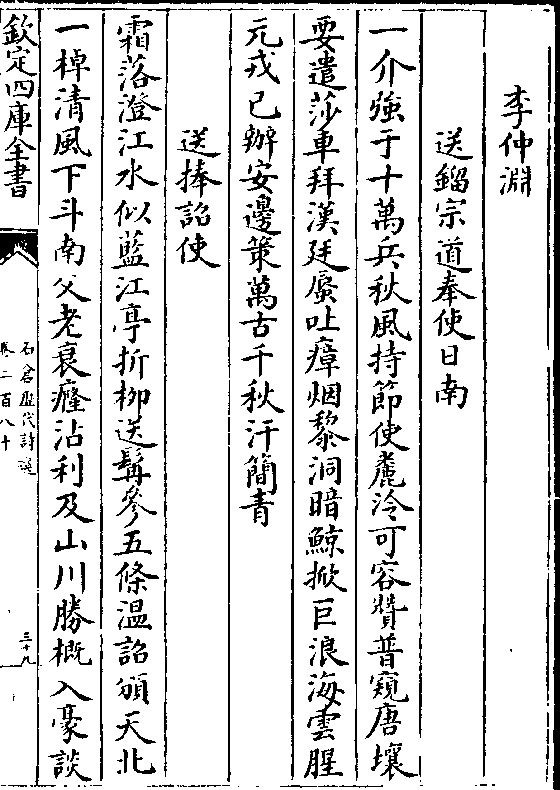 李仲淵
送鎦宗道奉使日南
一介強于十萬兵秋風持節使麊泠可容贊普窺唐壤
要遣莎車拜漢廷蜃吐瘴烟黎洞暗鯨掀巨浪海雲腥
元戎已辦安邊策萬古千秋汗簡青
送捧詔使
霜落澄江水似藍江亭折柳送鬖參五條温詔頒天北
一棹清風下斗南父老衰癃沾利及山川勝概入豪談
欽定四庫全書
石倉歷代詩選
卷二百八十
三十九